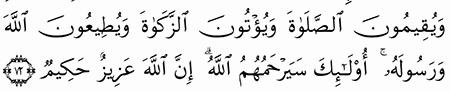 وَيُقِيمُونَ ٱلصَّلَوٰةَ وَيُؤْتُونَ ٱلزَّكَوٰةَ وَيُطِيعُونَ ٱللَّهَ
وَرَسُولَهُۥٓ ۚ أُو۟لَـٰٓئِكَ سَيَرْحَمُهُمُ ٱللَّهُ ۗ إِنَّ ٱللَّهَ عَزِيزٌ حَكِيمٌ ﴿٧٢﴾